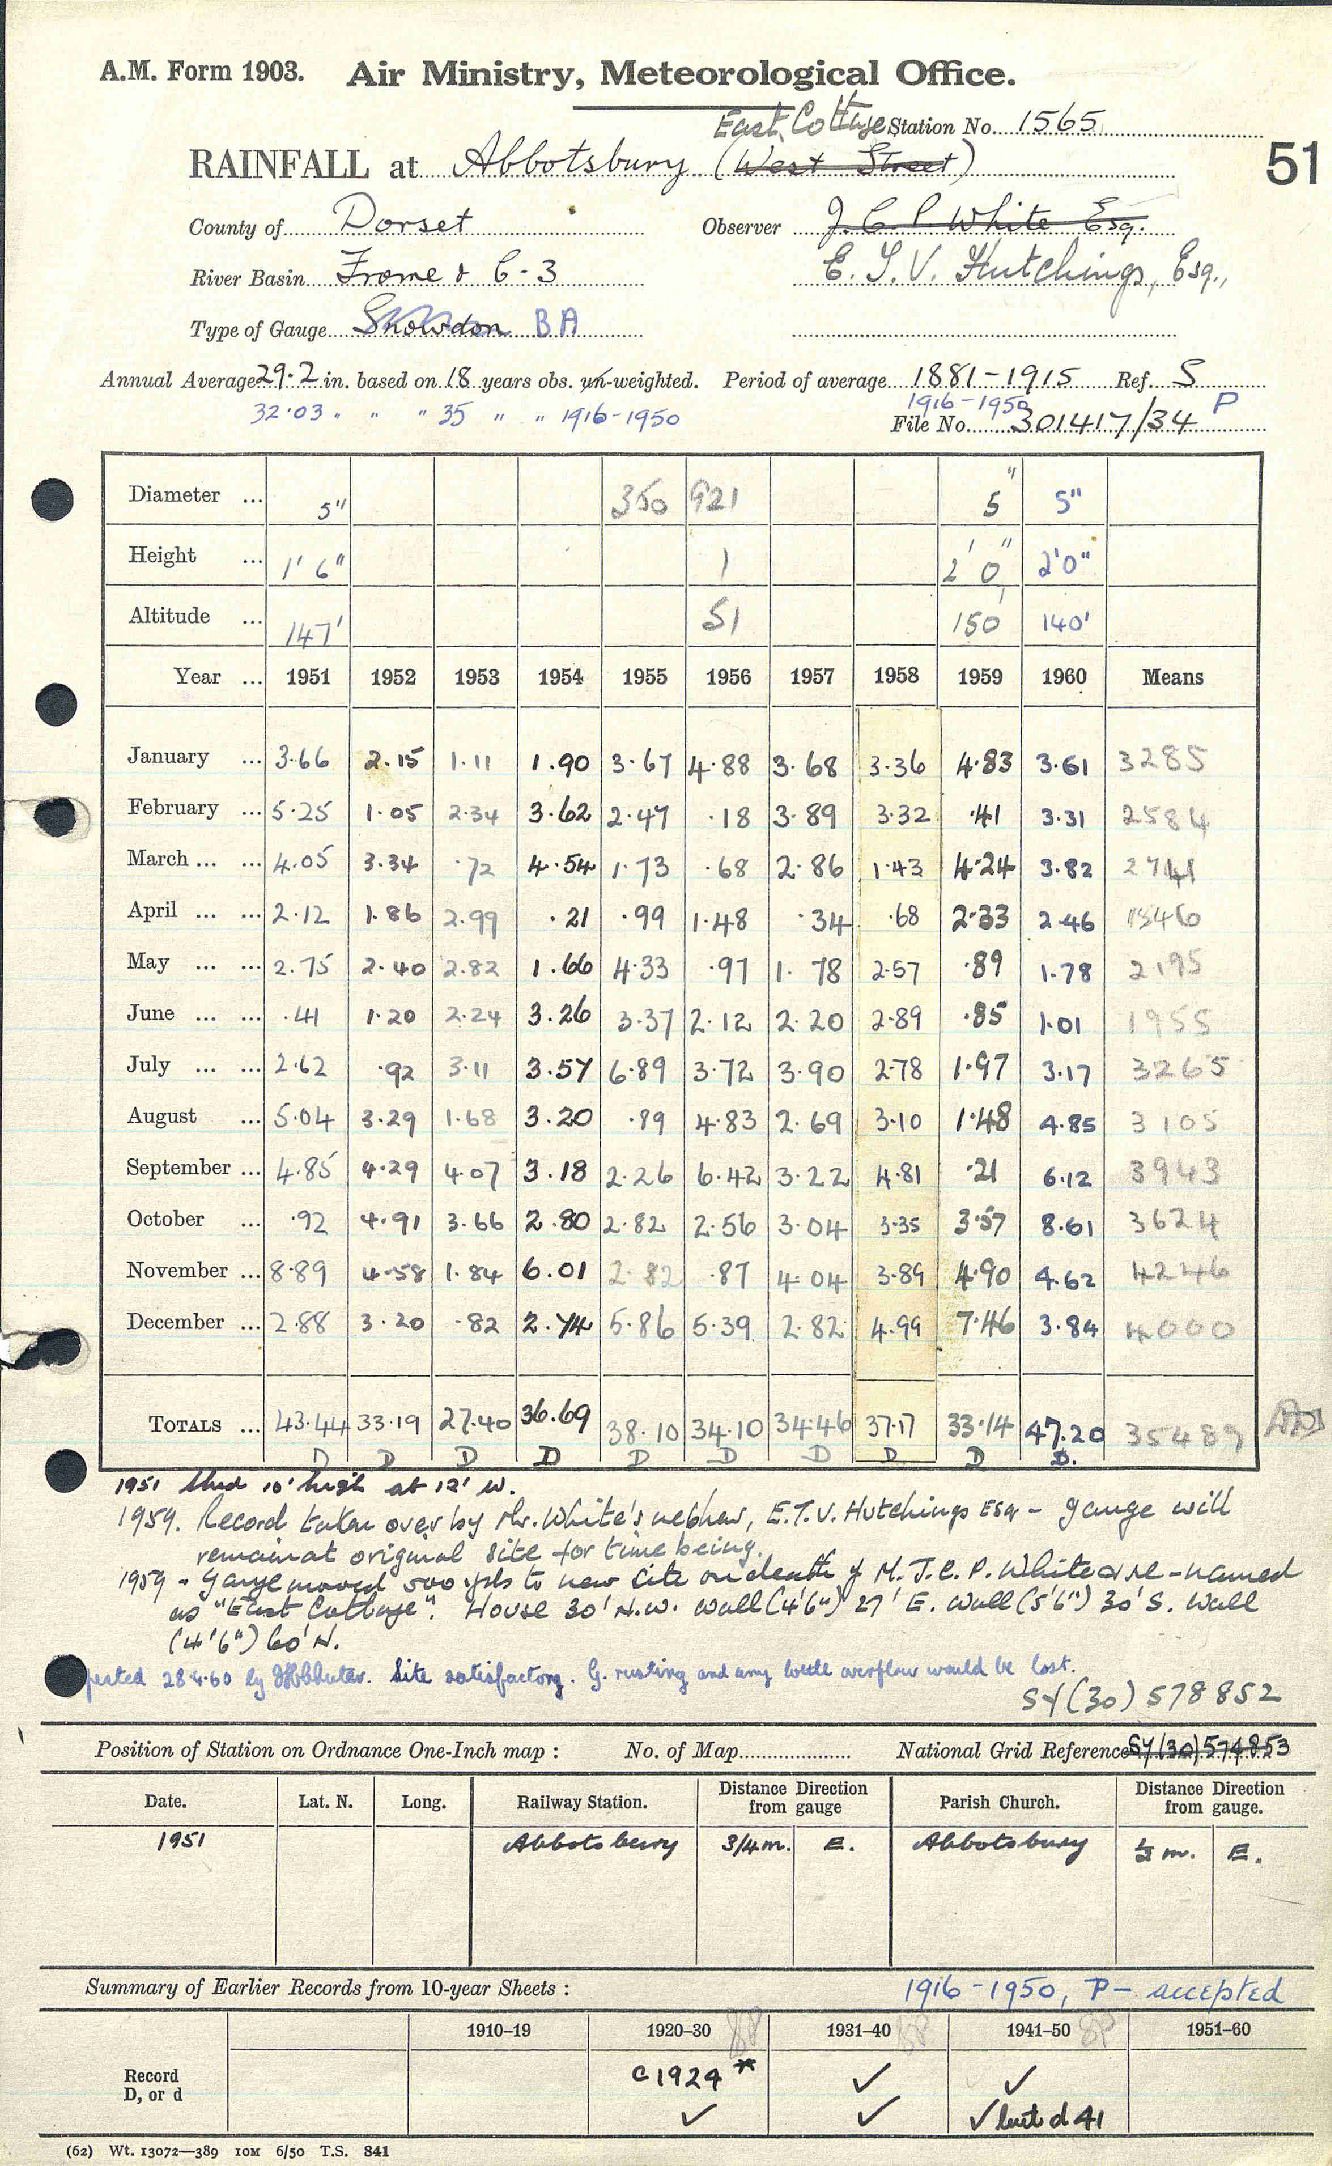 A.M. Form 1903. Air Ministry, Meteorological Office.
East Cottage Station No. 1565
RAINFALL at Abbotsbury (West Street)
51
County of Dorset Observer J. C. P. White Esq.
River Basin Frome & C-3 E. T. V. Hutchings, Esq.,
Type of Gauge Snowdon BA
Annual Average 29.2 in. based on 18 years obs. un-weighted. Period of average 1881-1915 Ref. S
32.03 " " " 35 " " " 1916-1950 1916-1950 P
File No. 301417/34
Diameter ... 5" 350 921 5" 5"
Height ... 1' 6" 1 2' 0" 2'0"
Altitude ... 147' 51 150' 140'
Year ... 1951 1952 1953 1954 1955 1956 1957 1958 1959 1960 Means
January ... 3.66 2.15 1.11 1.90 3.67 4.88 3.68 3.36 4.83 3.61 3285
February ... 5.25 1.05 2.34 3.62 2.47 .18 3.89 3.32 .41 3.31 2584
March ... ... 4.05 3.34 .72 4.54 1.73 .68 2.86 1.43 4.24 3.82 2741
April ... ... 2.12 1.86 2.99 .21 .99 1.48 .34 .68 2.33 2.46 1546
May ... ... 2.75 2.40 2.82 1.66 4.33 .97 1.78 2.57 .89 1.78 2195
June ... ... .41 1.20 2.24 3.26 3.37 2.12 2.20 2.89 .85 1.01 1955
July ... ... 2.62 .92 3.11 3.57 6.89 3.72 3.90 2.78 1.97 3.17 3265
August ... 5.04 3.29 1.68 3.20 .89 4.83 2.69 3.10 1.48 4.85 3105
September ... 4.85 4.29 4.07 3.18 2.26 6.42 3.22 4.81 .21 6.12 3943
October ... .92 4.91 3.66 2.80 2.82 2.56 3.04 3.35 3.57 8.61 3624
November ... 8.89 4.58 1.84 6.01 2.82 .87 4.04 3.89 4.90 4.62 4246
December ... 2.88 3.20 .82 2.74 5.86 5.39 2.82 4.99 7.46 3.84 4000
TOTALS ... 43.44 33.19 27.40 36.69 38.10 34.10 34.46 37.17 33.14 47.20 35489
D D D D D D D D D D.
1951 Shed 10' high at 12' W.
1959. Record taken over by Mr. White's nephew, E.T.V. Hutchings Esq - gauge will
remain at original site for time being.
1959 - Gauge moved 500 yds to new site on death of M. J.C.P. White & re-named
as "East Cottage". House 30' N.W. wall (4'6") 27' E. Wall (5'6") 30' S. Wall
(4'6") 60' N.
pected 28.4.60 by Site satisfactory. G. rusting and any bottle overflow would be lost.
SY(30) 578852
Position of Station on Ordnance One-Inch map : No. of Map National Grid Reference SY(30)574853
Date. Lat. N. Long. Railway Station. Distance from gauge Direction Parish Church. Distance from gauge. Direction
1951 Abbotsbury 3/4 m. E. Abbotsbury ½ m. E.
Summary of Earlier Records from 10-year Sheets : 1916-1950, P - accepted
1910–19 1920–30 1931–40 1941–50 1951–60
Record c1924* ✓ ✓
D, or d ✓ ✓ ✓ but d 41
(62) Wt. 13072—389 10M 6/50 T.S. 841